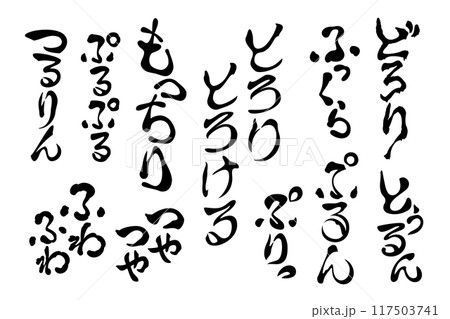 どろり
どぅるん
ふっくら
ぷるん
とろり
ぷりっ
とろける
もっちり
つや
つや
ぷるぷる
つるりん
ふわ
ふわ
pixta.jp - 117503741